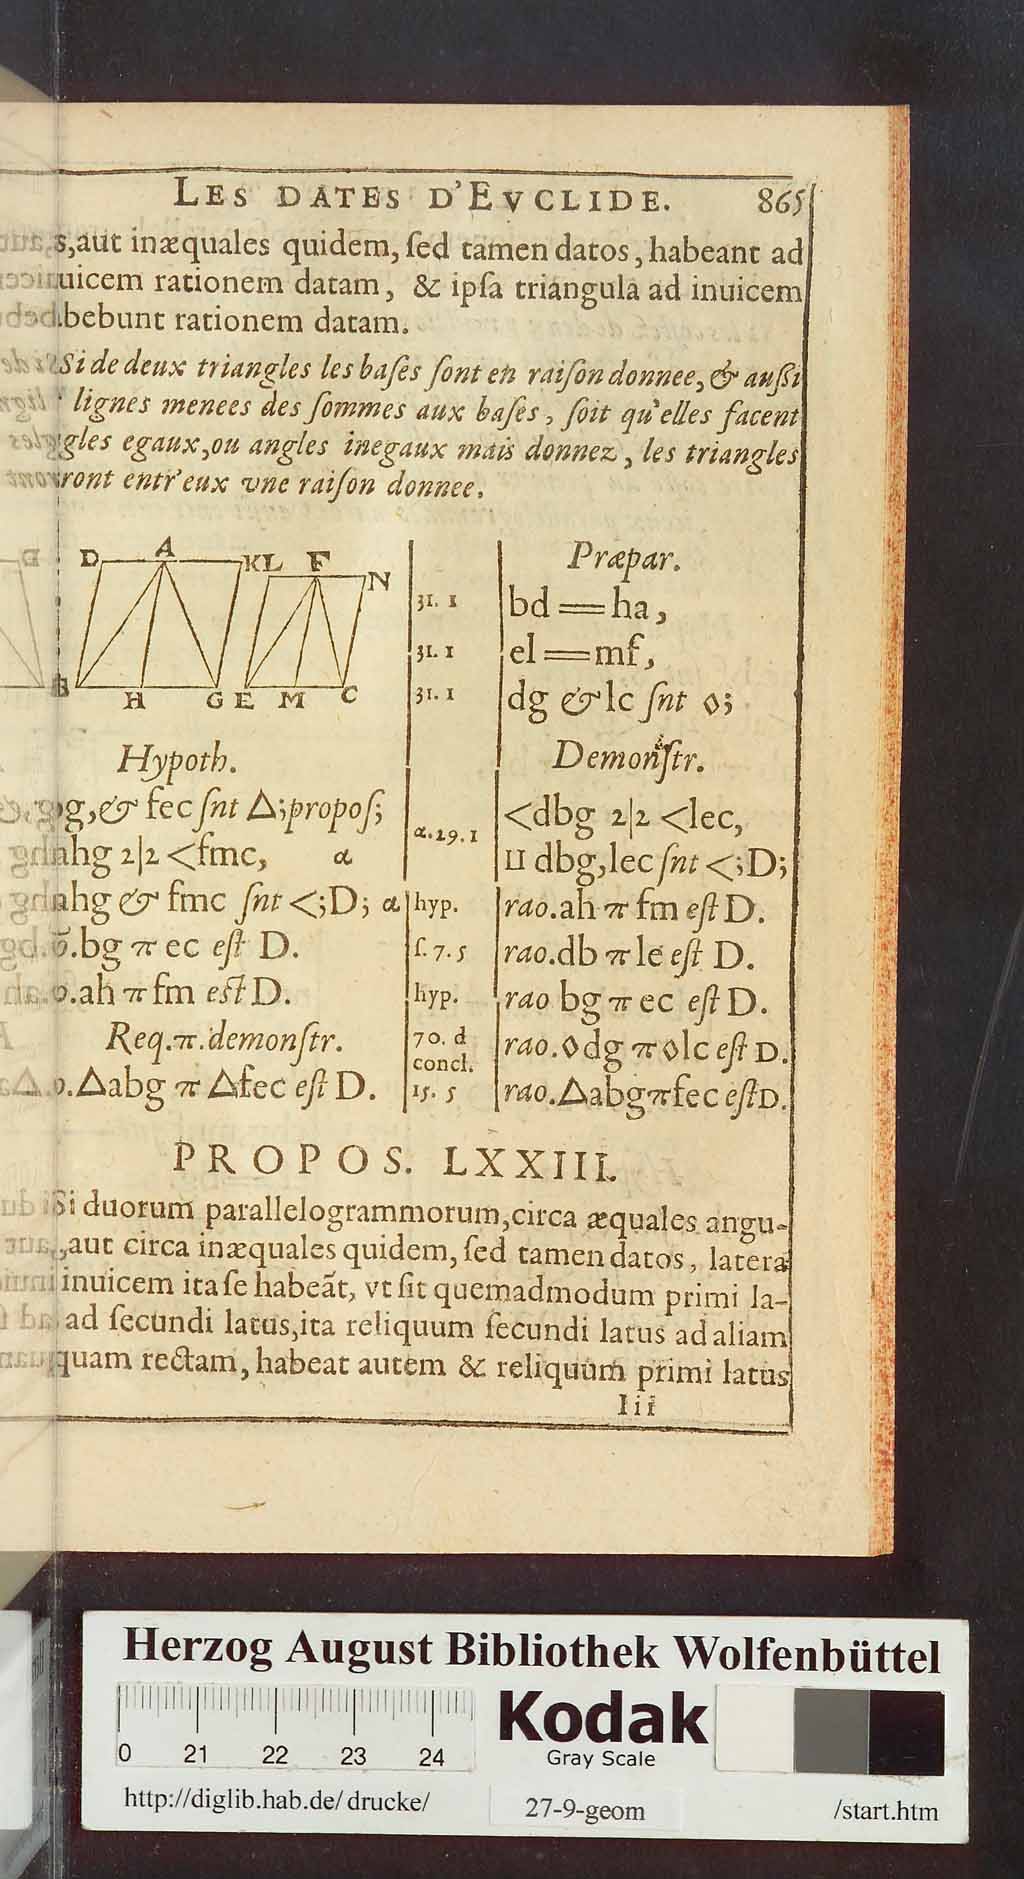 LES DATES D'EVCLIDE. 865
s, aut inæquales quidem, ſed tamen datos, habeant ad
uicem rationem datam, & ipſa triangula ad inuicem
bebunt rationem datam.
Si de deux triangles les baſes ſont en raiſon donnee, & auſsi
lignes menees des ſommes aux baſes, ſoit qu'elles facent
gles egaux, ou angles inegaux mais donnez, les triangles
ront entr'eux vne raiſon donnee.
D A KL F N
B H G E M C
Hypoth.
g, & fec ſnt △; propoſ;
ahg 2|2 <fmc, α
ahg & fmc ſnt <; D; α
o.bg π ec eſt D.
o.ah π fm eſt D.
Req. π. demonſtr.
o. △abg π △fec eſt D.
Præpar.
31. 1 bd == ha,
31. 1 el == mf,
31. 1 dg & lc ſnt ◊;
Demonſtr.
<dbg 2|2 <lec,
α. 29. 1
⊔ dbg, lec ſnt <; D;
hyp. rao. ah π fm eſt D.
ſ. 7. 5 rao. db π le eſt D.
hyp. rao bg π ec eſt D.
70. d rao. ◊dg π ◊lc eſt D.
concl.
15. 5 rao. △abg π fec eſt D.
PROPOS. LXXIII.
Si duorum parallelogrammorum, circa æquales angu-
, aut circa inæquales quidem, ſed tamen datos, latera
inuicem ita ſe habeãt, vt ſit quemadmodum primi la-
ad ſecundi latus, ita reliquum ſecundi latus ad aliam
quam rectam, habeat autem & reliquum primi latus
Iii
Herzog August Bibliothek Wolfenbüttel
0 21 22 23 24
Kodak
Gray Scale
http://diglib.hab.de/ drucke/ 27-9-geom /start.htm